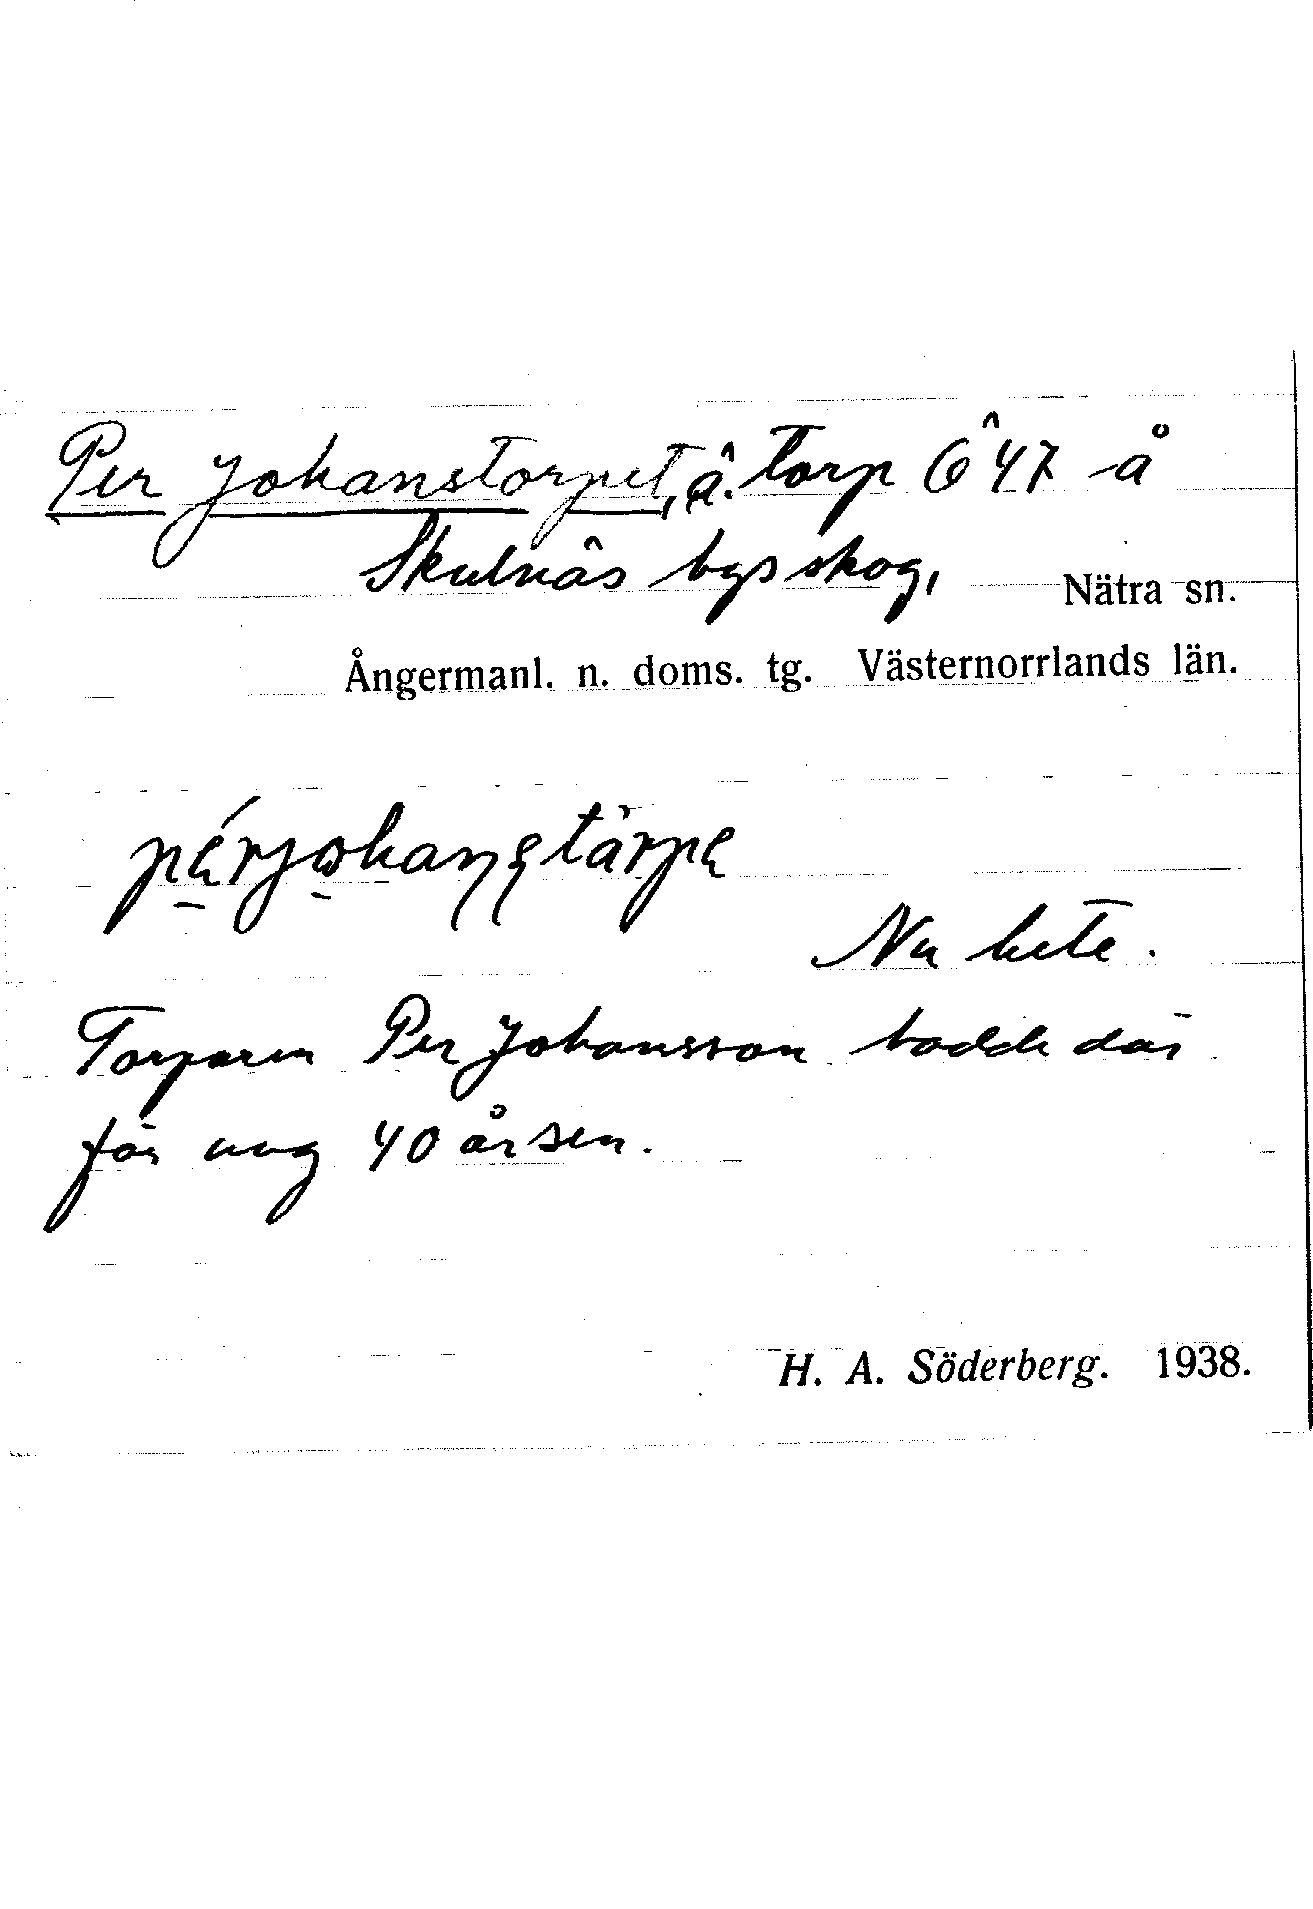 Per Johanstorpet, ä. torp 6^47 å
Skulnäs bys skog, Nätra sn.
Ångermanl. n. doms. tg. Västernorrlands län.
Nu bete.
Torparen Per Johansson bodde där
för nog 40 år sen.
H. A. Söderberg. 1938.